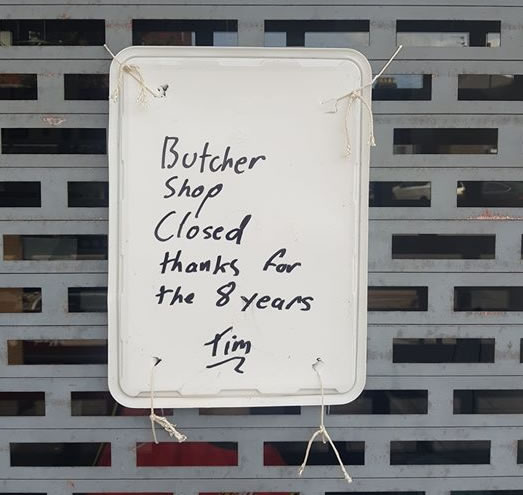 Butcher
Shop
Closed
thanks for
the 8 years
Tim